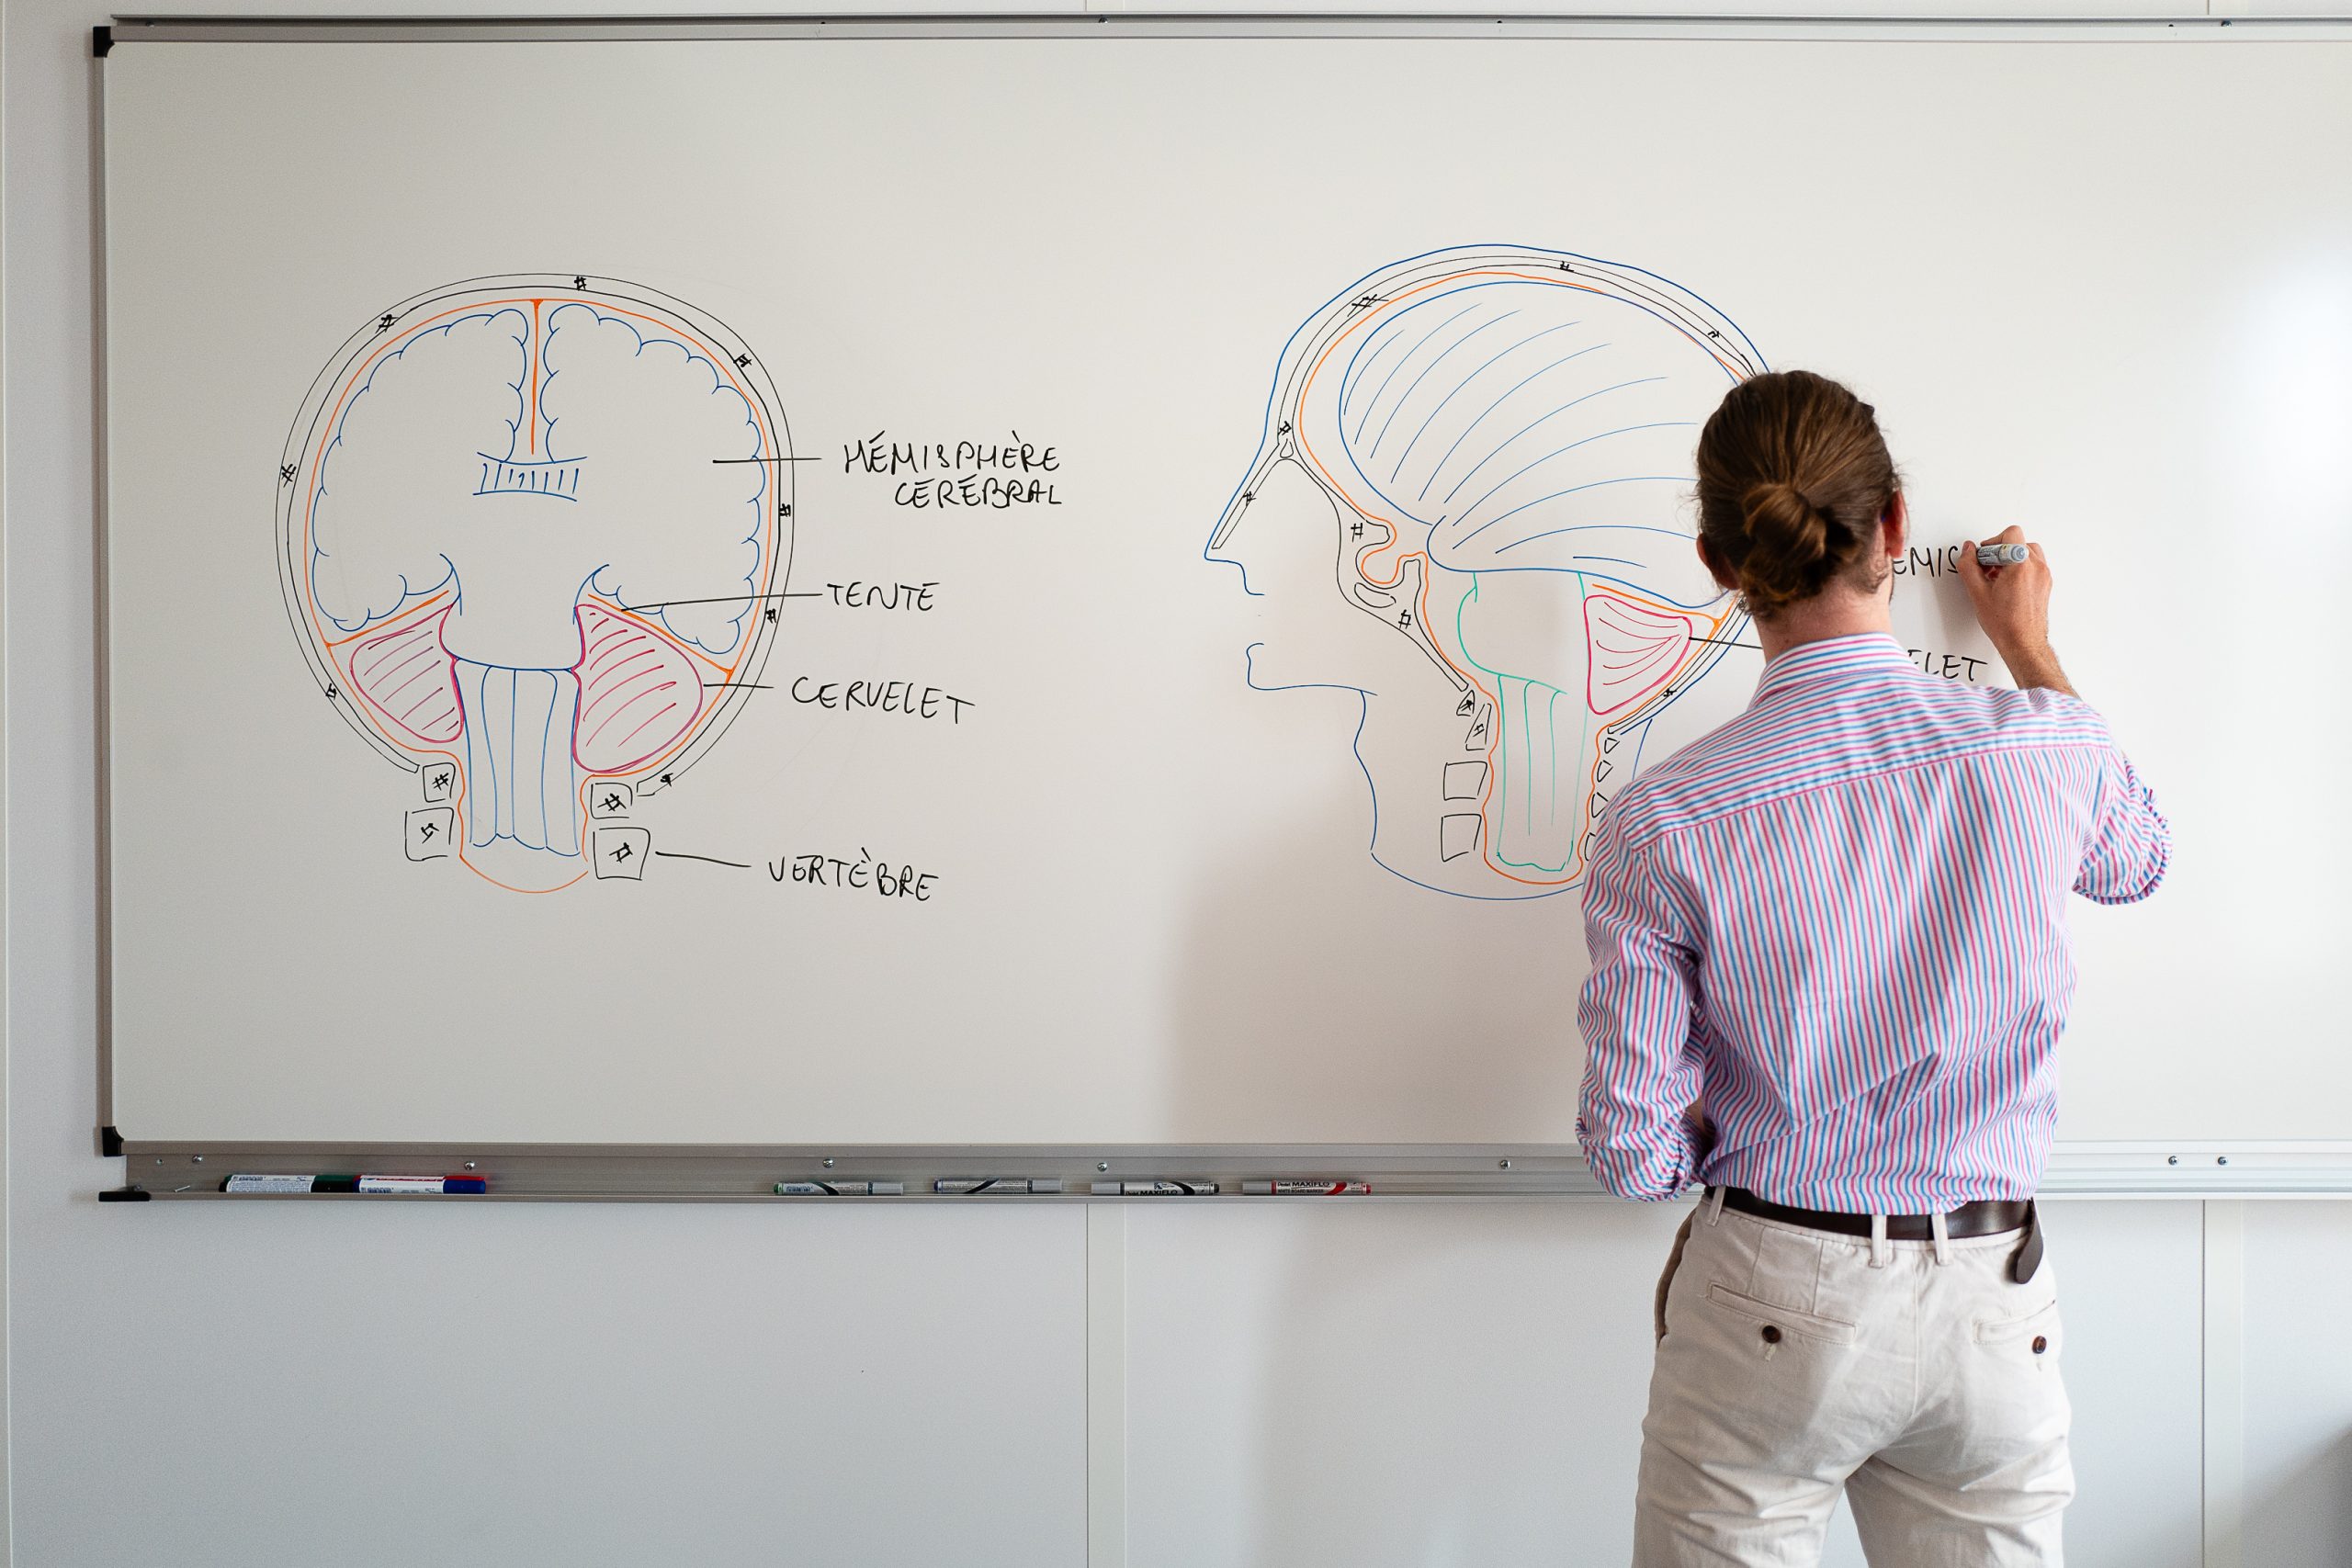 HÉMISPHÈRE
CÉRÉBRAL
TENTE
CERVELET
VERTÈBRE
ÉMIS
ELET
MAXIFLO
MAXIFLO